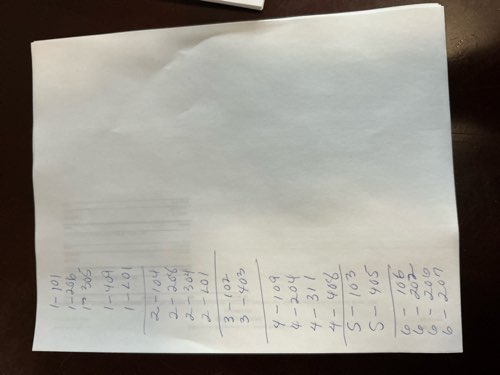 1-101
1-206
1-305
1-409
1-401
2-104
2-206
2-304
2-401
3-102
3-403
4-109
4-204
4-311
4-406
5-103
5-405
6-106
6-202
6-206
6-207